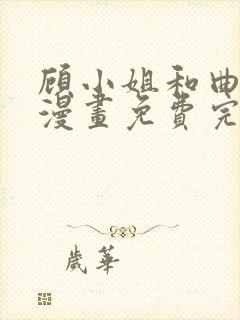 顾小姐和曲
漫畫免費完
歲華